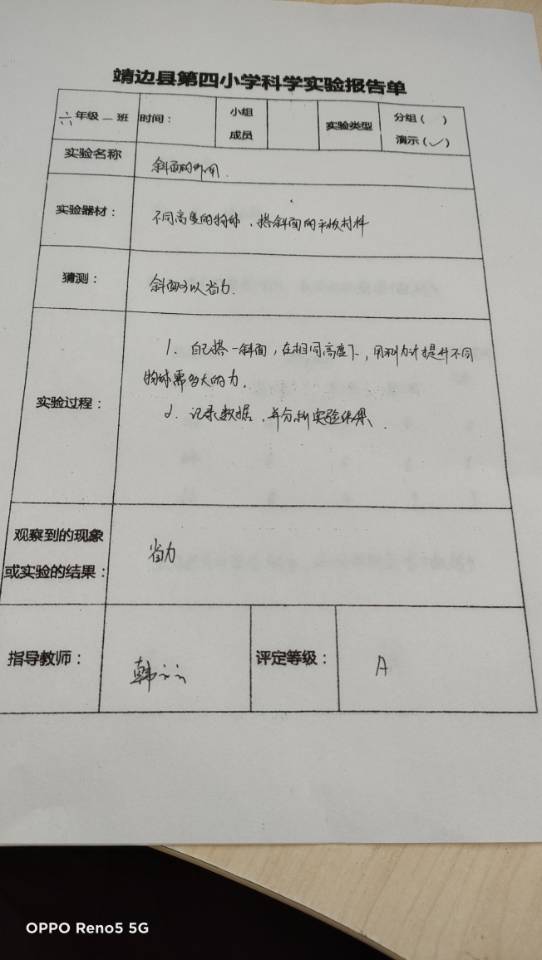 靖边县第四小学科学实验报告单
六年级一班 时间： 小组成员 实验类型 分组（ ） 演示（✓）
实验名称 斜面的作用
实验器材： 不同高度的物体、搭斜面的木板材料
猜测： 斜面可以省力.
实验过程：
1. 自己搭一斜面，在相同高度下，用测力计提升不同
物体需多大的力.
2. 记录数据，并分析实验结果.
观察到的现象
或实验的结果： 省力
指导教师： 韩 评定等级： A
OPPO Reno5 5G